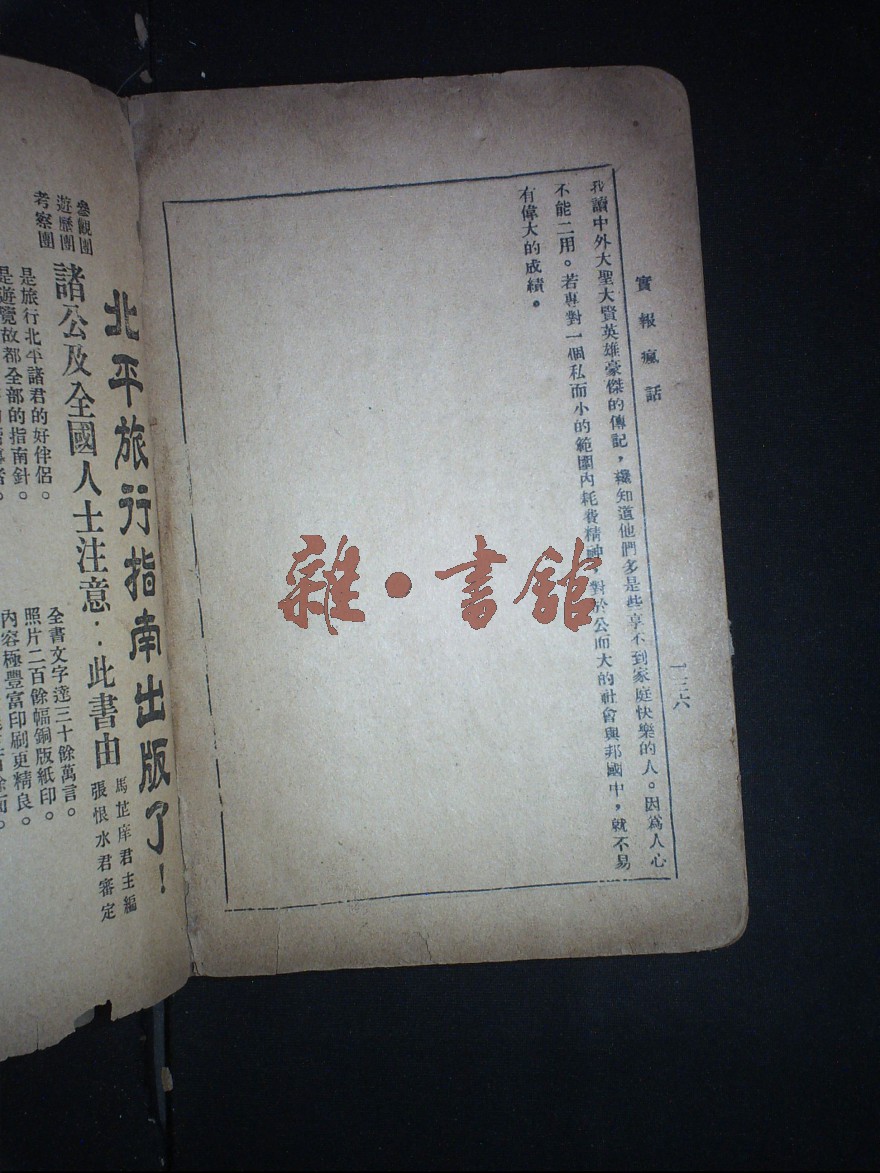 實報瘋話
一三六
我讀中外大聖大賢英雄豪傑的傳記，纔知道他們多是些享不到家庭快樂的人。因爲人心
不能二用。若專對一個私而小的範圍內耗費精神，對於公而大的社會與邦國中，就不易
有偉大的成績。
雜•書館
北平旅行指南出版了！
參觀團
遊歷團
考察團
諸公及全國人士注意：此書由
馬芷庠君主編
張恨水君審定
是旅行北平諸君的好伴侶。
是遊覽故都全部的指南針。
全書文字達三十餘萬言。
照片二百餘幅銅版紙印。
內容極豐富印刷更精良。